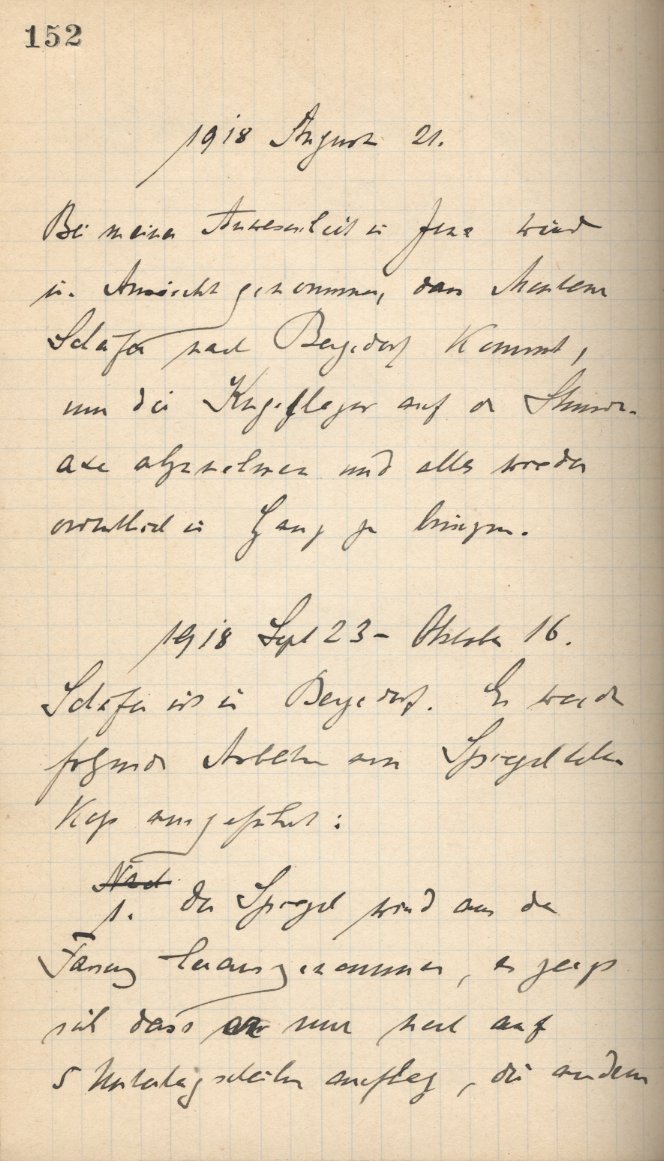 152
1918 August 21.
Bei meiner Anwesenheit in Jena wird
in Aussicht genommen, dass Monteur
Schäfer nach Bergedorf kommt,
um die Kugellager auf der Stunden-
axe abzunehmen und alles wieder
ordentlich in Gang zu bringen.
1918 Sept 23 - Oktober 16.
Schäfer ist in Bergedorf. Es werden
folgende Arbeiten am Spiegeltele-
skop ausgeführt:
Nach
1. Der Spiegel wird aus der
Fassung herausgenommen, es zeigt
sich dass er nur noch auf
5 Unterlagscheiben auflag, die anderen